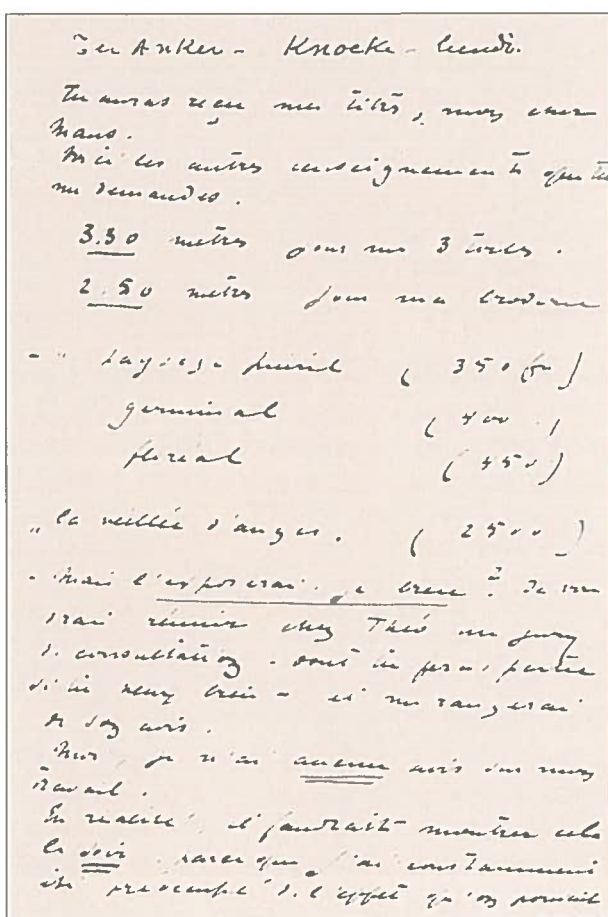 Ten Anker - Knocke - lundi.
Tu auras reçu mes titres, mon cher
Maus.
Voici les autres renseignements que tu
me demandes.
3.50 mètres pour mes 3 toiles.
2.50 mètres pour ma broderie
- " paysage puéril ( 350 fr )
germinal ( 400 . )
floréal ( 450 )
" la veillée d'anges. ( 2500 )
- Mais l'exposerai-je bien ? Je vou
drai réunir chez Théo un jury
de consultation - dont tu feras partie
si tu veux bien - et me rangerai
de son avis.
Moi, je n'ai aucun avis sur mon
travail.
En réalité il faudrait montrer cela
le soir parce que j'ai constamment
été préoccupé de l'effet qu'on pouvait